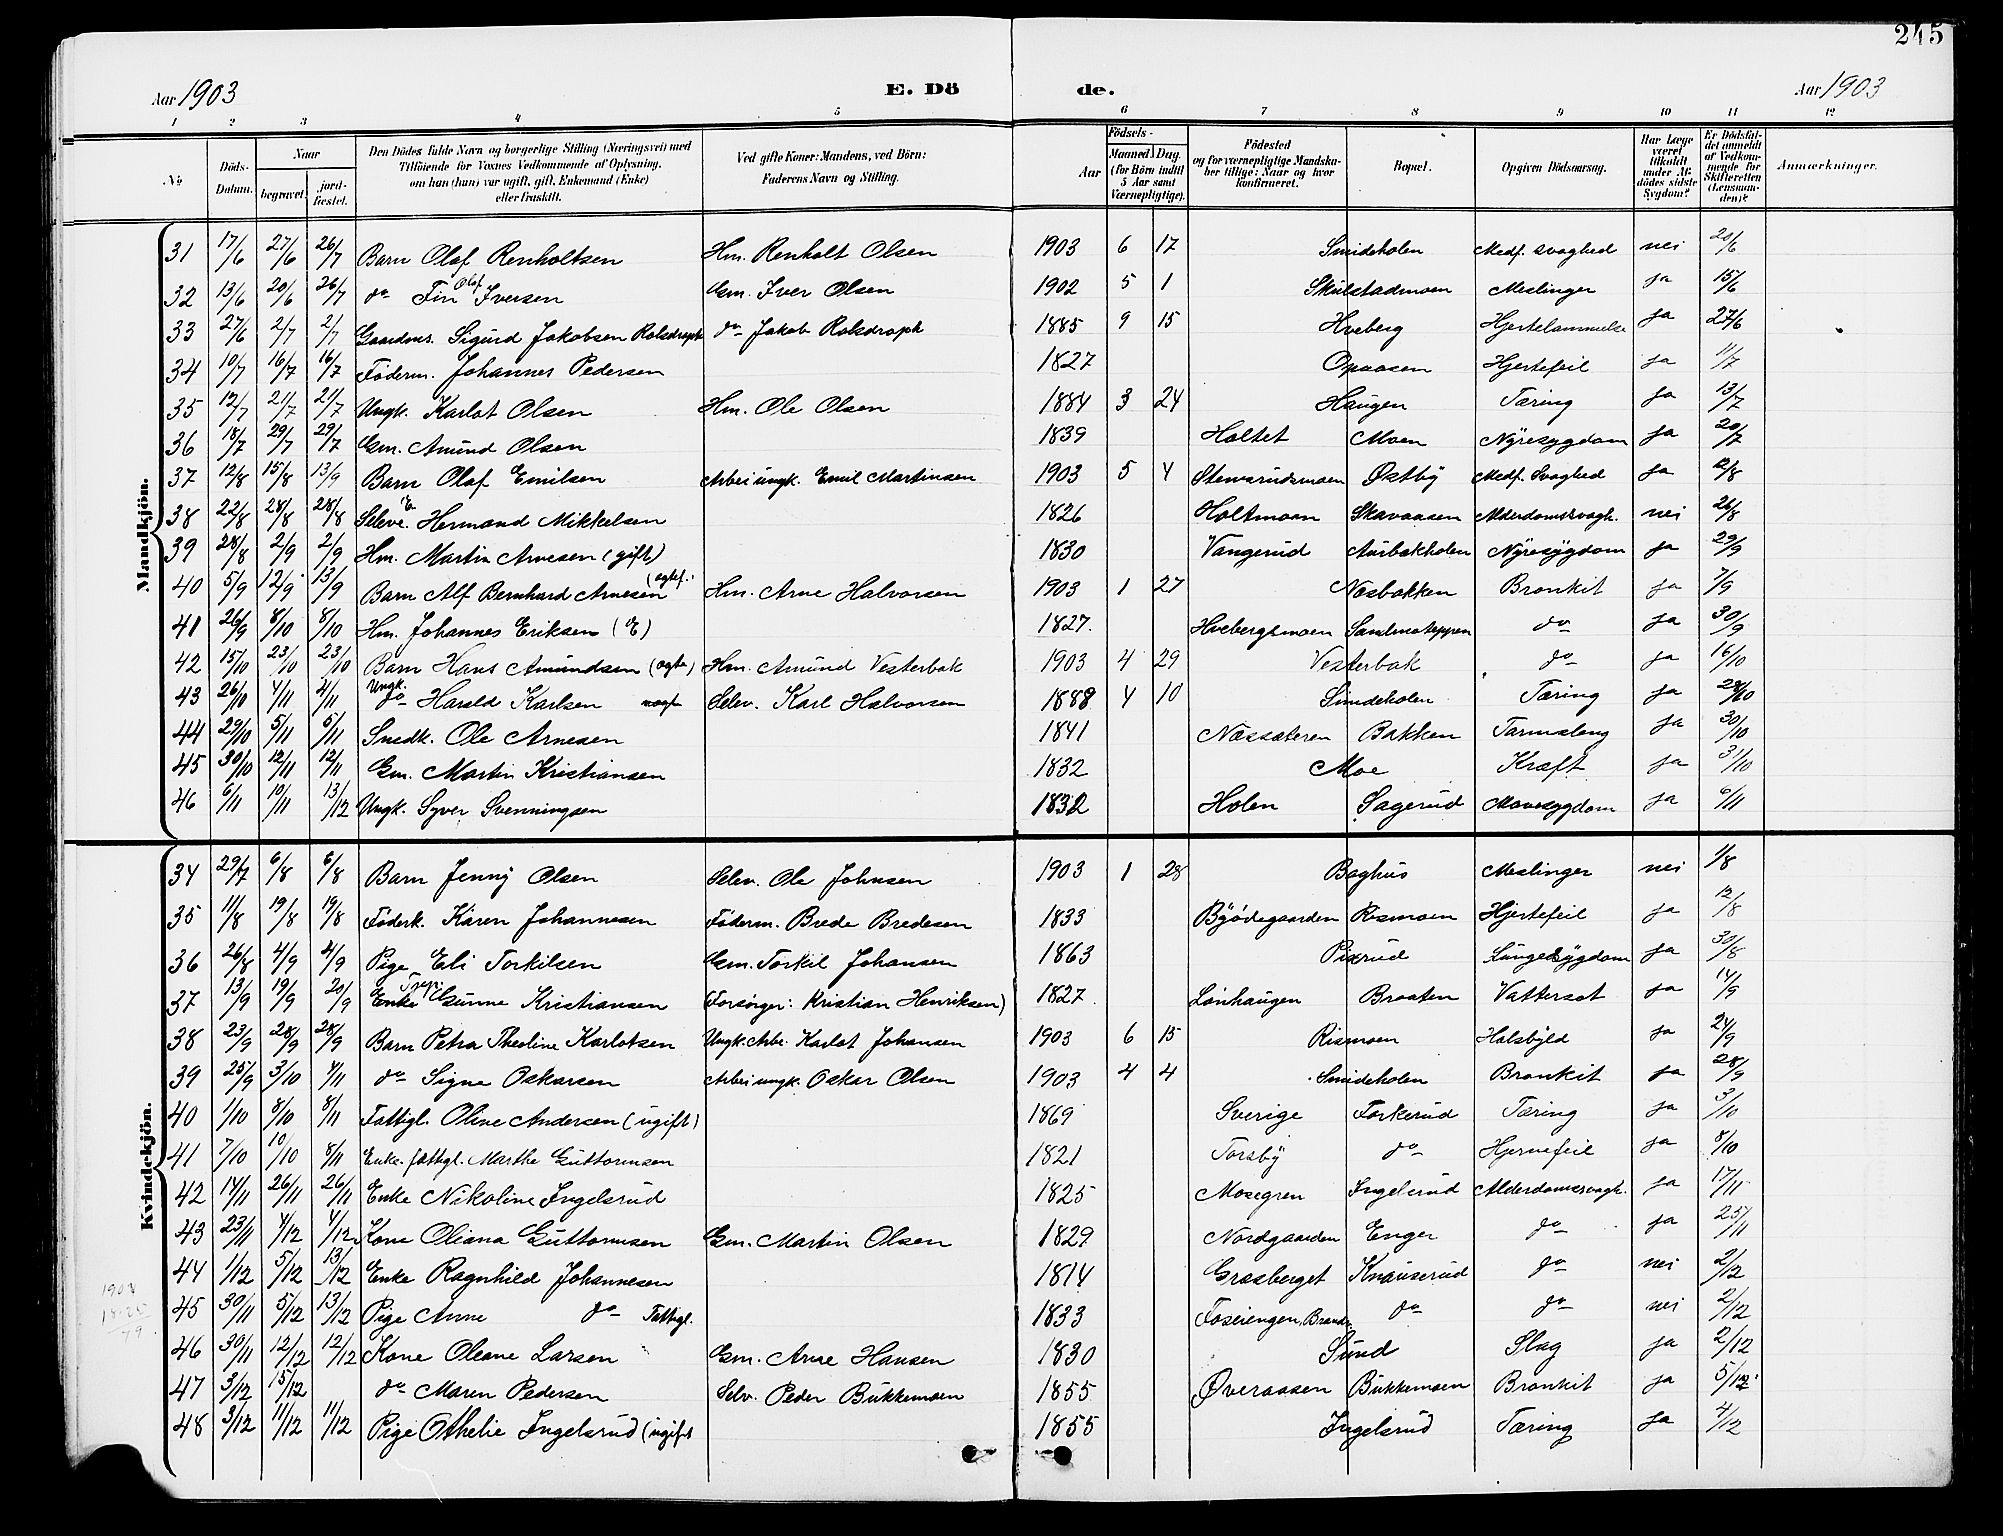 245
Aar 1903 E. Dö de. Aar 1903
1 2 3 4 5 6 7 8 9 10 11 12
№ Döds-Datum. Naar begravet. jord-fæstet. Den Dödes fulde Navn og borgerlige Stilling (Næringsvei) med Tilföiende for Voxnes Vedkommende af Oplysning, om han (hun) var ugift, gift, Enkemand (Enke) eller fraskilt. Ved gifte Koner: Mandens, ved Börn: Faderens Navn og Stilling. Födsels- Aar Maaned Dag. (for Börn indtil 5 Aar samt Værnepligtige). Födested og for værnepligtige Mandskaber tillige: Naar og hvor konfirmeret. Bopæl. Opgiven Dödsaarsag. Har Læge været tilkaldt under Afdödes sidste Sygdom? Er Dödsfaldet anmeldt af Vedkommende for Skifteretten (Lensmanden)? Anmærkninger.
Mandkjön.
31 17/6 27/6 26/7 Barn Olaf Renholtsen Hm. Renholt Olsen 1903 6 17 Smideholen Medf. svaghed nei 20/6
32 13/6 20/6 26/7 do Fin Olaf Iversen Gm. Iver Olsen 1902 5 1 Skulstadmoen Meslinger ja 15/6
33 27/6 2/7 2/7 Gaardms. Sigurd Jakobsen Rolsdroph do Jakob Rolsdroph 1885 9 15 Hveberg Hjertelammelse ja 27/6
34 10/7 16/7 16/7 Föderm. Johannes Pedersen 1827 Opaasen Hjertefeil ja 11/7
35 12/7 21/7 21/7 Ungk. Karlot Olsen Hm. Ole Olsen 1884 3 24 Haugen Tæring ja 13/7
36 18/7 29/7 29/7 Gm. Amund Olsen 1839 Holtet Moen Nyresygdom ja 20/7
37 12/8 15/8 13/9 Barn Olaf Emilsen Arbei ungk. Emil Martinsen 1903 5 4 Stensrudsmoen Østby Medf. Svaghed ja /8
38 22/8 28/8 28/8 Seleve. E. Hermand Mikkelsen 1826 Holtmoen Skavaasen Alderdomssvagh. nei 26/8
39 28/8 2/9 2/9 Hm. Martin Arnesen (gift) 1830 Vangerud Aurbakholen Nyresygdom ja 29/9
40 5/9 12/9 13/9 Barn Alf Bernhard Arnesen (egtef.) Hm. Arne Halvorsen 1903 1 27 Næsbakken Bronkit ja 7/9
41 26/9 8/10 8/10 Hm. Johannes Eriksen (E) 1827. Hvebergsmoen Sandmoteppen do ja 30/9
42 15/10 23/10 23/10 Barn Hans Amundsen (egte) Hm. Amund Vesterbak 1903 4 29 Vesterbak do ja 16/10
43 26/10 4/11 4/11 Ungk. do Harald Karlsen uegte Selev. Karl Halvorsen 1888 4 10 Smideholen Tæring ja 28/10
44 29/10 5/11 5/11 Snedk. Ole Arnesen 1841 Næssæteren Bakken Tarmslyng ja 30/10
45 30/10 12/11 12/11 Gm. Martin Kristiansen 1832 Moe Kræft ja 31/10
46 6/11 10/11 13/12 Ungk. Syver Svenningsen 1832 Holen Sagerud Mavesygdom ja 6/11
Kvindekjön.
34 29/7 6/8 6/8 Barn Jenny Olsen Selev. Ole Johnsen 1903 1 28 Baghus Meslinger nei 1/8
35 11/8 19/8 19/8 Föderk. Karen Johannesen Föderm. Brede Bredesen 1833 Bgödegaarden Rismoen Hjertefeil ja 12/8
36 26/8 4/9 4/9 Pige Eli Torkilsen Gm. Torkil Johansen 1863 Pixrud Lungesygdom ja 30/8
37 13/9 19/9 20/9 Enke Gunne Kristiansen (Forsörger: Kristian Henriksen) 1827 Lönhaugen Braaten Vattersot ja 14/9
38 23/9 28/9 28/9 Barn Petra Theoline Karlotsen Ungk. Arbe. Karlot Johansen 1903 6 15 Rismoen Halsbyld ja 24/9
39 25/9 3/10 4/11 do Signe Oskarsen Arbei ungk. Oskar Olsen 1903 4 4 Smideholen Bronkit ja 28/9
40 1/10 8/10 8/11 Fattigl. Oline Andersen (ugift) 1869 Sverige Torkerud Tæring ja 3/10
41 7/10 10/10 8/11 Enke. fattigl. Marthe Guttormsen 1821 Torsby do Hjernefeil ja 8/10
42 14/11 26/11 26/11 Enke Nikoline Ingelsrud 1825 Mosegren Ingelsrud Alderdomssvagh. ja 17/11
43 23/11 4/12 4/12 Kone Oliana Guttormsen Gm. Martin Olsen 1829 Nordgaarden Enger do ja 25/11
44 1/12 5/12 13/12 Enke Ragnhild Johannesen 1814 Græsberget Knauserud do nei 2/12
1903 18-25 79
45 30/11 5/12 13/12 Pige Anne do Fattigl. 1833 Foseiengen, Brands. do do nei 2/12
46 30/11 12/12 12/12 Kone Oleane Larsen Gm. Arne Hansen 1830 Sund Slag ja 2/12
47 3/12 15/12 do Maren Pedersen Selv. Peder Bukkemoen 1855 Øveraasen Bukkemoen Bronkit ja 5/12
48 3/12 11/12 11/12 Pige Othelie Ingelsrud (ugift 1855 Ingelsrud Tæring ja 4/12